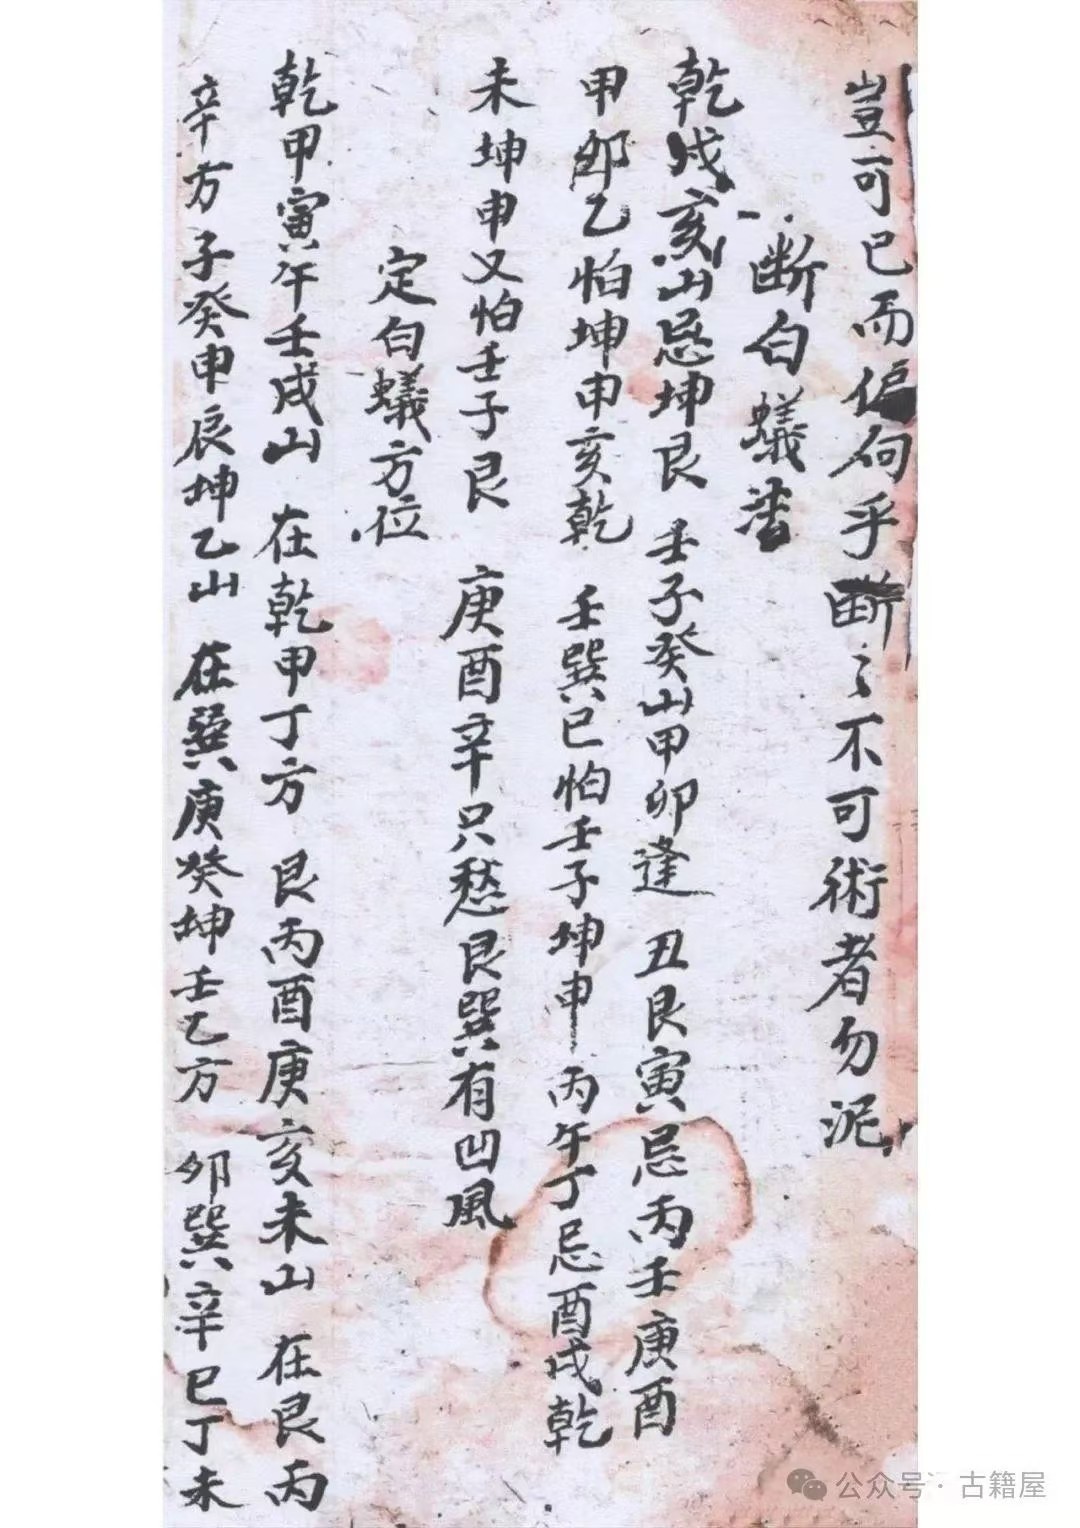 豈可已而偏向乎斷之不可術者勿泥
斷白蟻法
乾戌亥山忌坤艮 壬子癸山甲卯逢 丑艮寅忌丙壬庚酉
甲卯乙怕坤申亥乾 壬巽巳怕壬子坤申 丙午丁忌酉戌乾
未坤申又怕壬子艮 庚酉辛只愁艮巽有凹風
定白蟻方位
乾甲寅午壬戌山 在乾甲丁方 艮丙酉庚亥未山 在艮丙
辛方子癸申辰坤乙山 在巽庚癸坤壬乙方 卯巽辛巳丁未
公众号·古籍屋